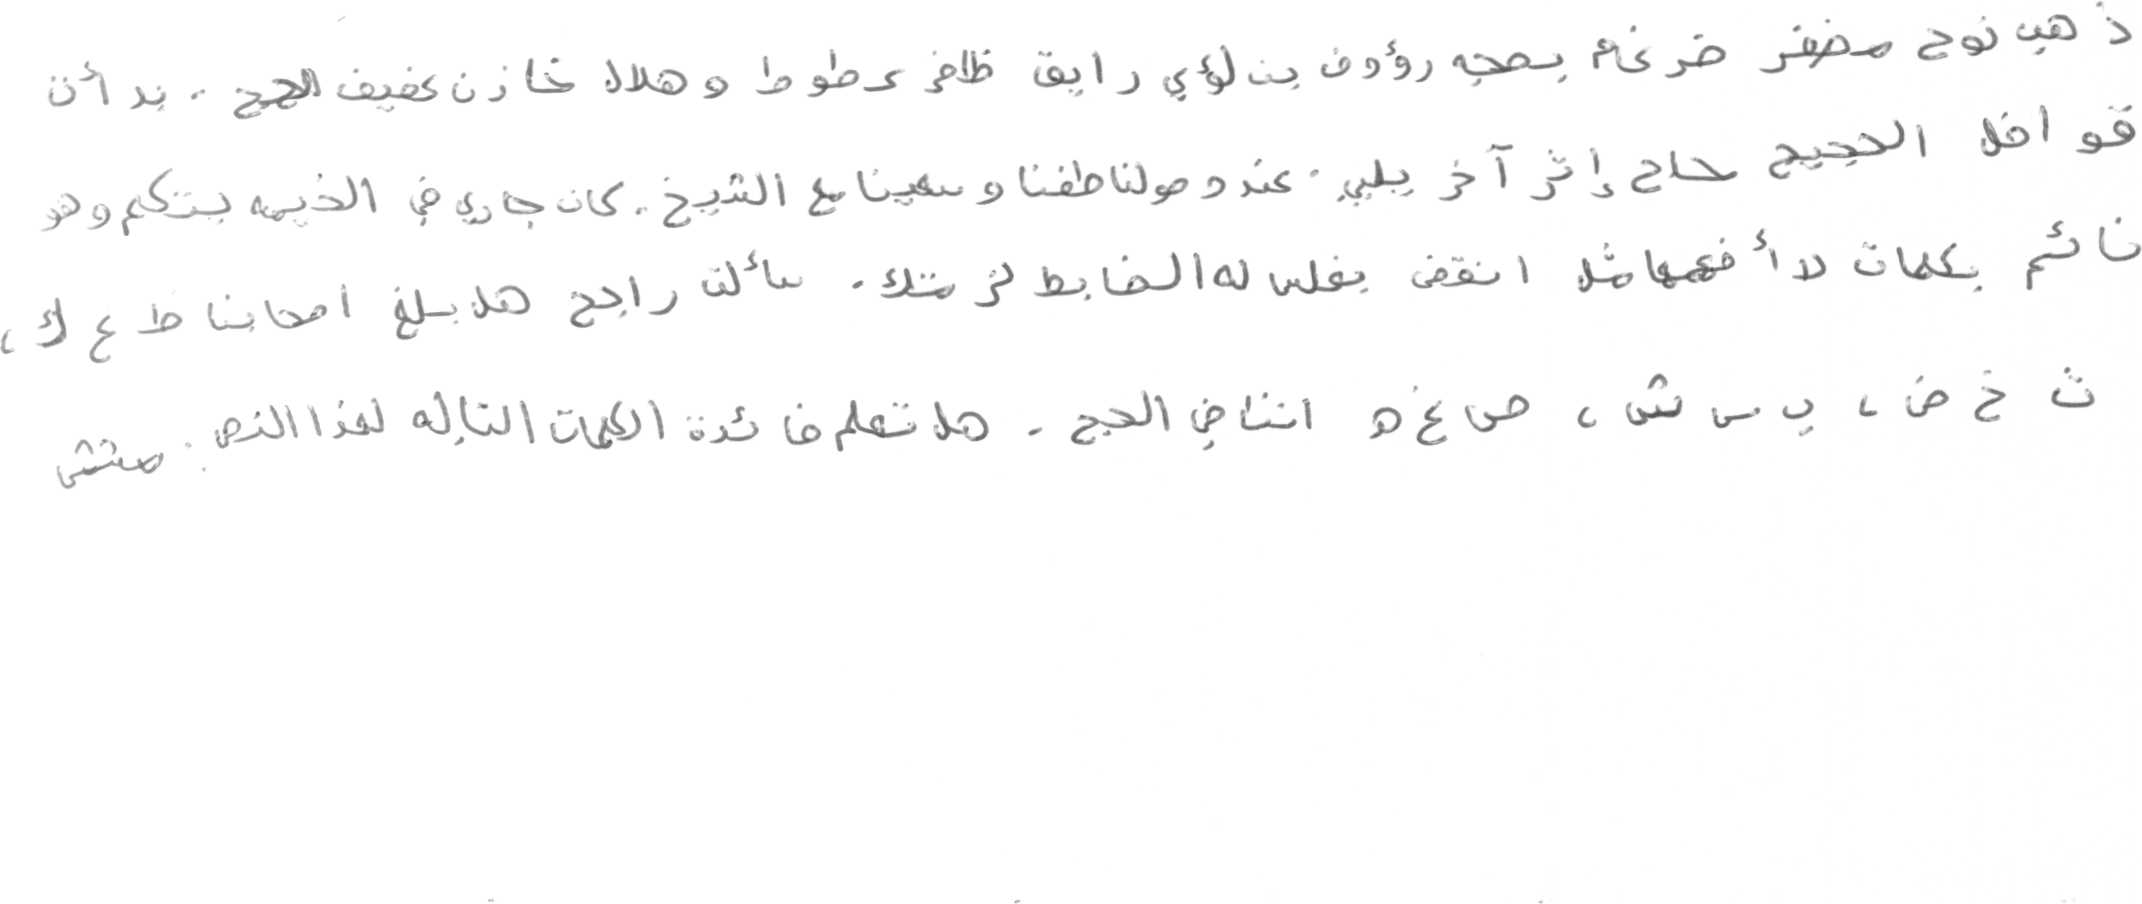 ذهب نوح مضفر ضرغام بصحبه رؤوف بن لؤي رايق ظافر عطوط وهلال خازن عفيف الحج . بدأت
قوافل الحجيج حاج إثر آخر يلبي . عند وصولنا طفنا وسعينا مع الشيخ . كان جاري في الخيمه يتكلم وهو
نائم بكلمات لا أفهمها مثل انقض بفلس له الضابط لز متك . سألت راجح هل بلغ اصحابنا ظ ع ك ،
ث خ ض ، ي س ش ، ص غ ه اننا في الحج . هل تعلم فائدة الكلمات التاليه لهذا النص :